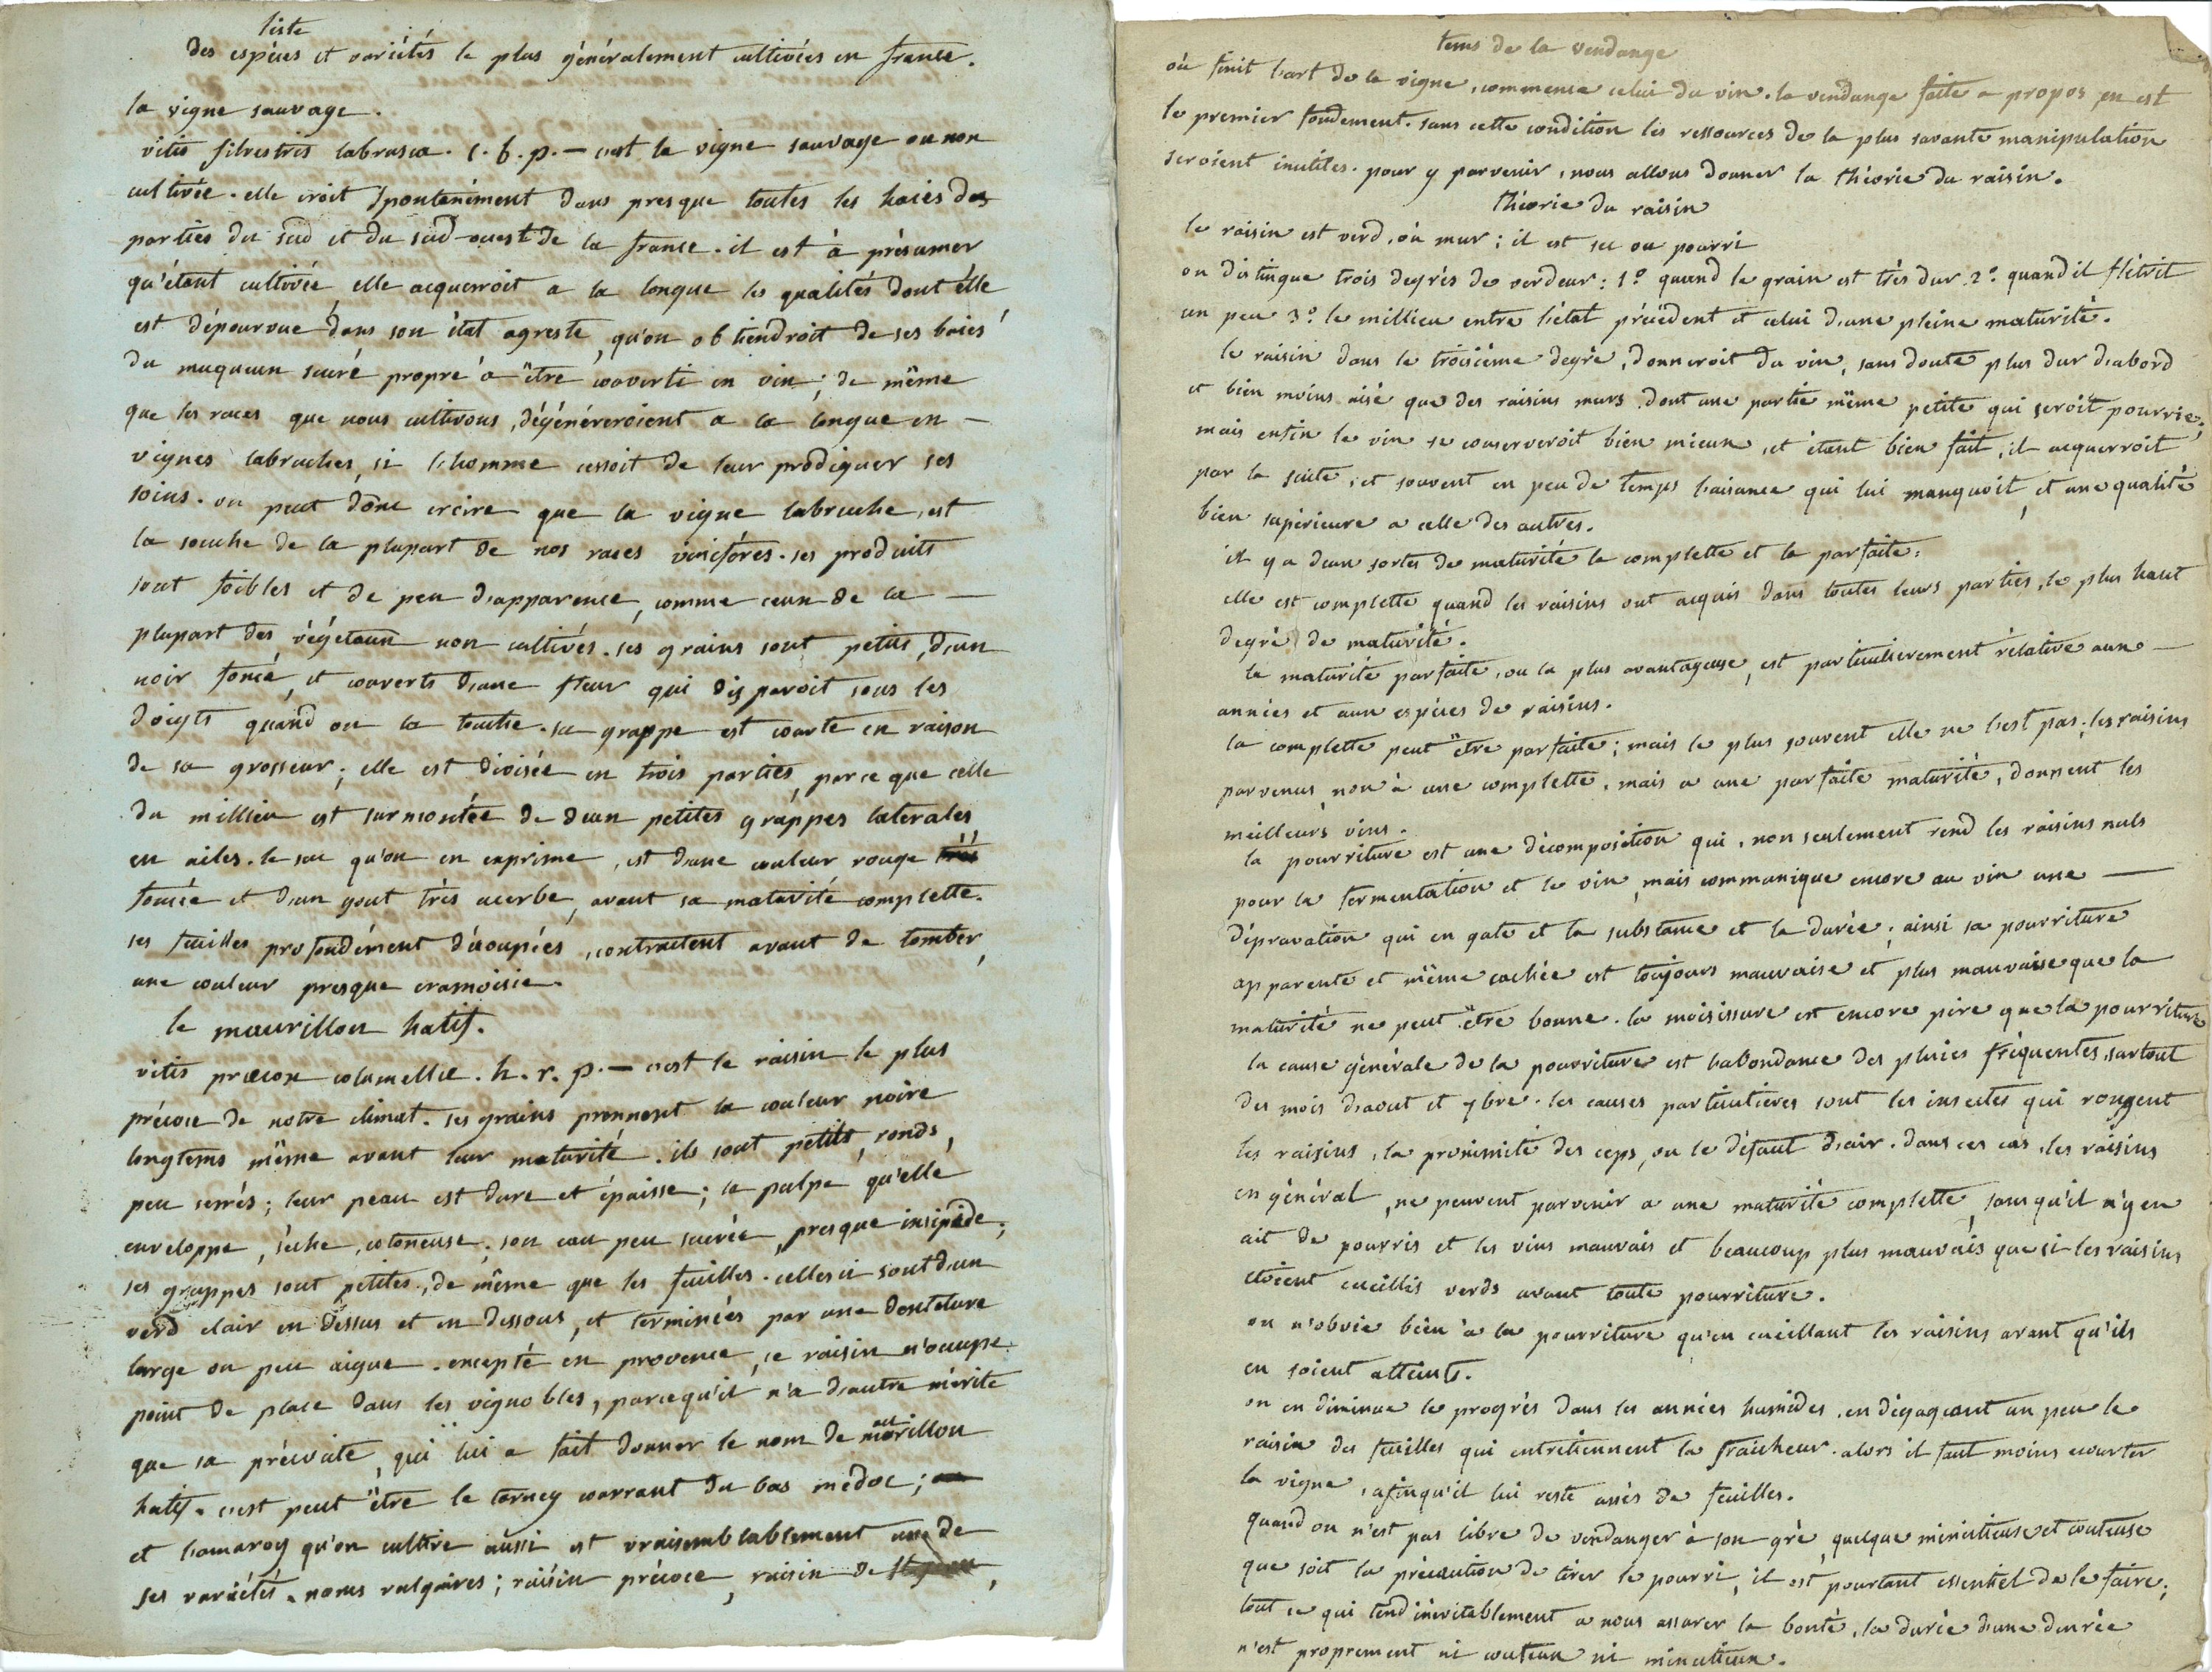 liste
des espèces et variétés le plus généralement cultivées en france.
la vigne sauvage.
vitis silvestris labrusca. c. b. p. — c'est la vigne sauvage ou non
cultivée. elle croit spontanément dans presque toutes les haies des
parties du sud et du sud-ouest de la france. il est à présumer
qu'étant cultivée, elle acquerroit a la longue les qualités dont elle
est dépourvue dans son état agreste, qu'on obtiendroit de ses baies
du muqueux sucré propre à être converti en vin; de même
que les races que nous cultivons, dégénéreroient a la longue en —
vignes labruches, si l'homme cessoit de leur prodiguer ses
soins. on peut donc croire que la vigne labruche, est
la souche de la plupart de nos races vinifères. ses produits
sont foibles et de peu d'apparence, comme ceux de la —
plupart des végétaux non cultivés. ses grains sont petits, d'un
noir foncé, et couverts d'une fleur qui disparoit sous les
doigts quand on la touche. sa grappe est courte en raison
de sa grosseur; elle est divisée en trois parties, parce que celle
du millieu est surmontée de deux petites grappes laterales
en ailes. le suc qu'on en exprime, est d'une couleur rouge très
foncée et d'un gout très acerbe, avant sa maturité complette.
ses feuilles profondément découpées, contractent avant de tomber,
une couleur presque cramoisie.
le maurillon hatif.
vitis præcox columellæ. h. r. p. — c'est le raisin le plus
précoce de notre climat. ses grains prennent la couleur noire
longtems même avant leur maturité. ils sont petits, ronds,
peu serrés; leur peau est dure et épaisse; la pulpe qu'elle
enveloppe, sèche, cotoneuse; son eau peu sucrée, presque insipide;
ses grappes sont petites, de même que les feuilles. celles ci sont d'un
verd clair en dessus et en dessous, et terminées par une dentelure
large ou peu aigue. excepté en provence, ce raisin n'occupe
point de place dans les vignobles, parcequ'il n'a d'autre mérite
que sa précocité, qui lui a fait donner le nom de maurillon
hatif. c'est peut être le tarney courant du bas médoc;
et l'amaroy qu'on cultive aussi est vraisemblablement une de
ses variétés. noms vulgaires; raisin précoce, raisin de
tems de la vendange
où finit l'art de la vigne, commence celui du vin. la vendange faite a propos en est
le premier fondement. sans cette condition les ressources de la plus savante manipulation
seroient inutiles. pour y parvenir, nous allons donner la théorie du raisin.
théorie du raisin
le raisin est verd, où mur; il est sec ou pourri
on distingue trois degrés de verdeur: 1.º quand le grain est très dur. 2.º quand il flétrit
un peu 3.º le millieu entre l'état précédent et celui d'une pleine maturité.
le raisin dans le troisième degré, donneroit du vin, sans doute plus dur d'abord
et bien moins aisé que des raisins murs dont une partie même petite qui seroit pourrie,
mais enfin le vin se conserveroit bien mieux, et étant bien fait, il acquerroit
par la suite, et souvent en peu de temps l'aisance qui lui manquoit, et une qualité
bien supérieure a celle des autres.
il y a deux sortes de maturité la complette et la parfaite:
elle est complette quand les raisins ont acquis dans toutes leurs parties, le plus haut
degré de maturité.
la maturité parfaite, ou la plus avantageuse, est particulierement rélative aux —
années et aux espèces de raisins.
la complette peut être parfaite; mais le plus souvent elle ne l'est pas. les raisins
parvenus, non à une complette, mais a une parfaite maturité, donnent les
meilleurs vins.
la pourriture est une décomposition qui, non seulement rend les raisins nuls
pour la fermentation et le vin, mais communique encore au vin une —
dépravation qui en gate et la substance et la durée; ainsi sa pourriture
apparente et même cachée est toujours mauvaise et plus mauvaise que la
maturité ne peut être bonne. la moisissure est encore pire que la pourriture
la cause générale de la pourriture est l'abondance des pluies fréquentes, surtout
des mois d'aout et 7bre. les causes particulieres sont les insectes qui rongent
les raisins, la proximité des ceps, ou le défaut d'air. dans ces cas, les raisins
en général, ne peuvent parvenir a une maturité complette, sans qu'il n'y en
ait de pourris et les vins mauvais et beaucoup plus mauvais que si les raisins
etoient cueillis verds avant toute pourriture.
on n'obvie bien à la pourriture qu'en cueillant les raisins avant qu'ils
en soient atteints.
on en diminue le progrès dans les années humides, en dégageant un peu le
raisin des feuilles qui entretiennent la fraicheur. alors il faut moins ecourter
la vigne, afinqu'il lui reste assès de feuilles.
quand on n'est pas libre de vendanger à son gré, quelque minutieuse et couteuse
que soit la précaution de tirer le pourri, il est pourtant essentiel de le faire;
tout ce qui tend inévitablement a nous assurer la bonté, la durée d'une denrée
n'est proprement ni couteux ni minutieux.